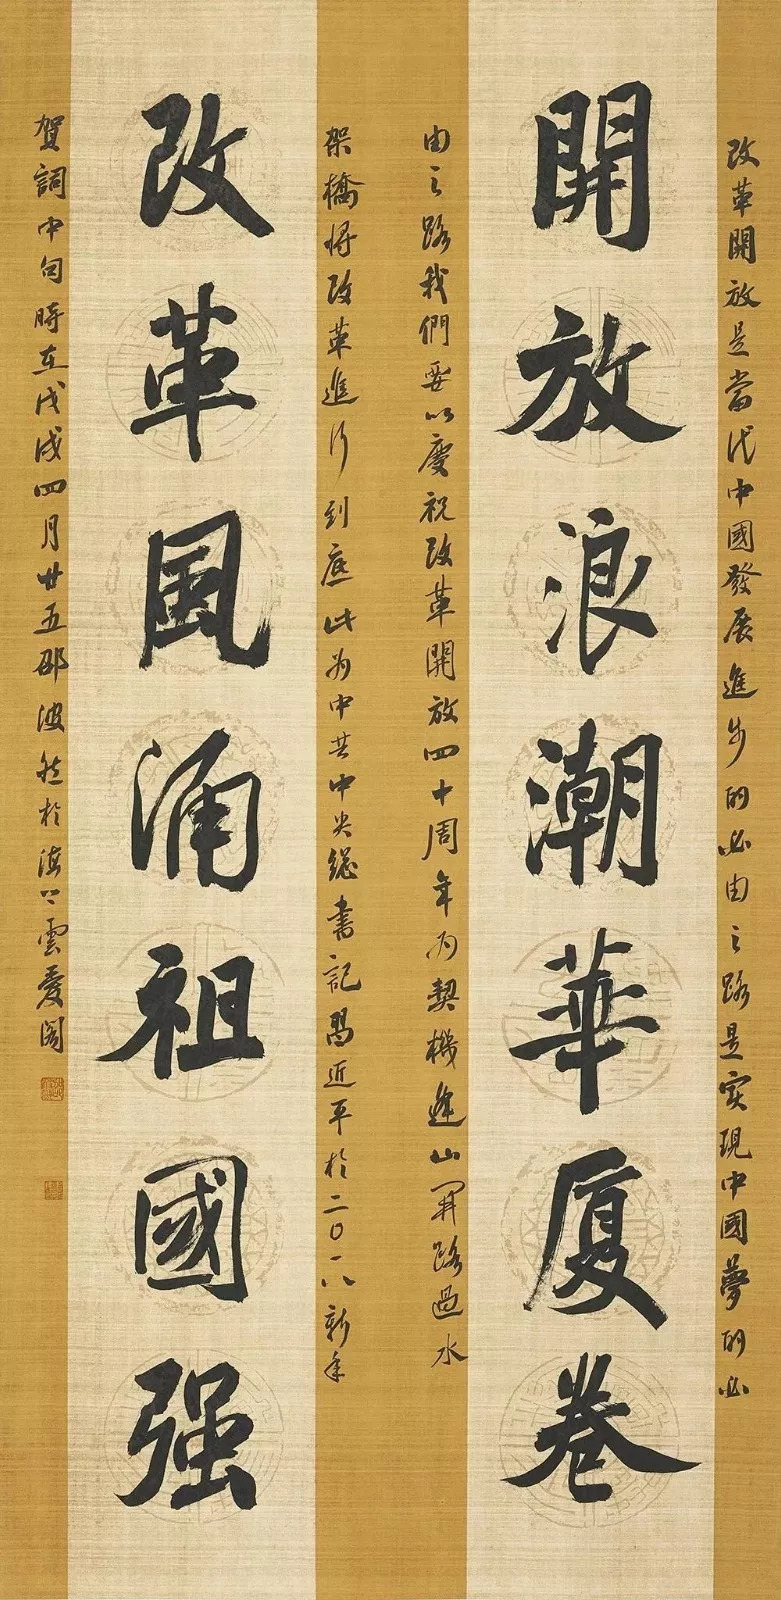 改革開放是當代中國發展進步的必由之路是实現中國夢的必
開放浪潮華厦卷
由之路我們要以慶祝改革開放四十周年为契機逢山開路過水
架橋將改革進行到底此为中共中央總書記習近平於二〇一八新年
改革風涌祖國强
賀詞中句時在戊戌四月廿五邵波然於海上雲愛閣